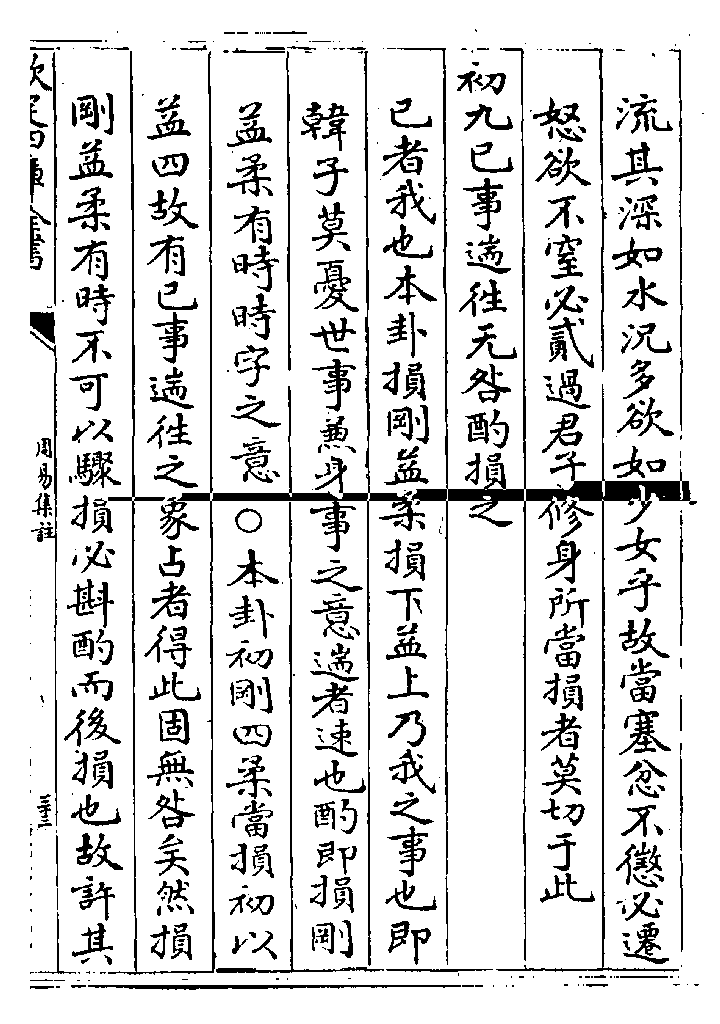 流其深如水況多欲如少女乎故當塞忿不懲必遷
怒欲不窒必貳過君子修身所當損者莫切于此
初九已事遄徃无咎酌損之
已者我也本卦損剛益柔損下益上乃我之事也即
韓子莫憂世事兼身事之意遄者速也酌即損剛
益柔有時時字之意○本卦初剛四柔當損初以
益四故有已事遄徃之象占者得此固無咎矣然損
剛益柔有時不可以驟損必斟酌而後損也故許其
欽定四庫全書
周易集註